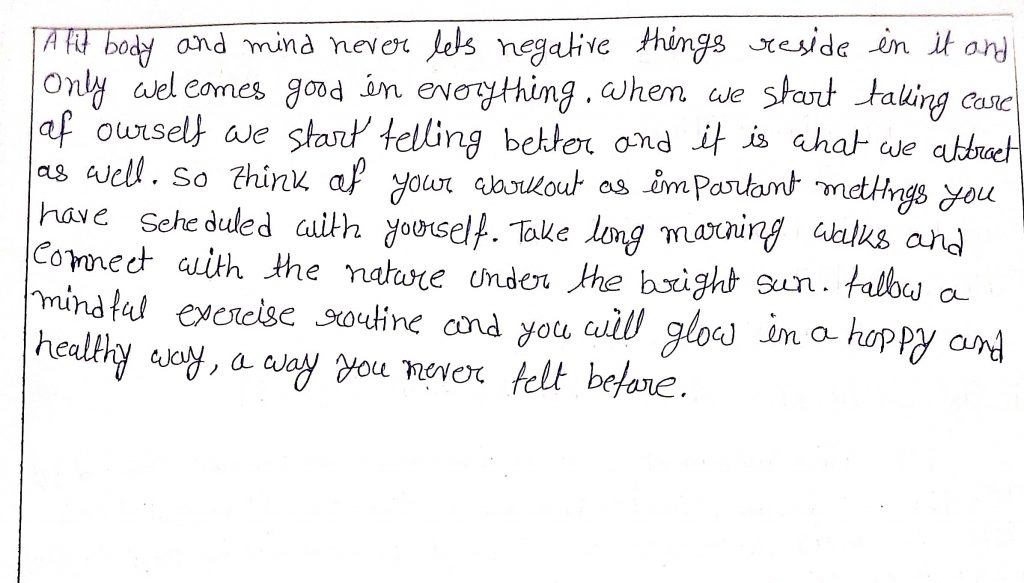 A fit body and mind never lets negative things reside in it and
Only welcomes good in everything. When we start taking care
of ourself we start felling better and it is what we attract
as well. So think of your workout as important mettings you
have scheduled with yourself. Take long morning walks and
Connect with the nature under the bright sun. follow a
mindful exercise routine and you will glow in a happy and
healthy way, a way you never felt before.